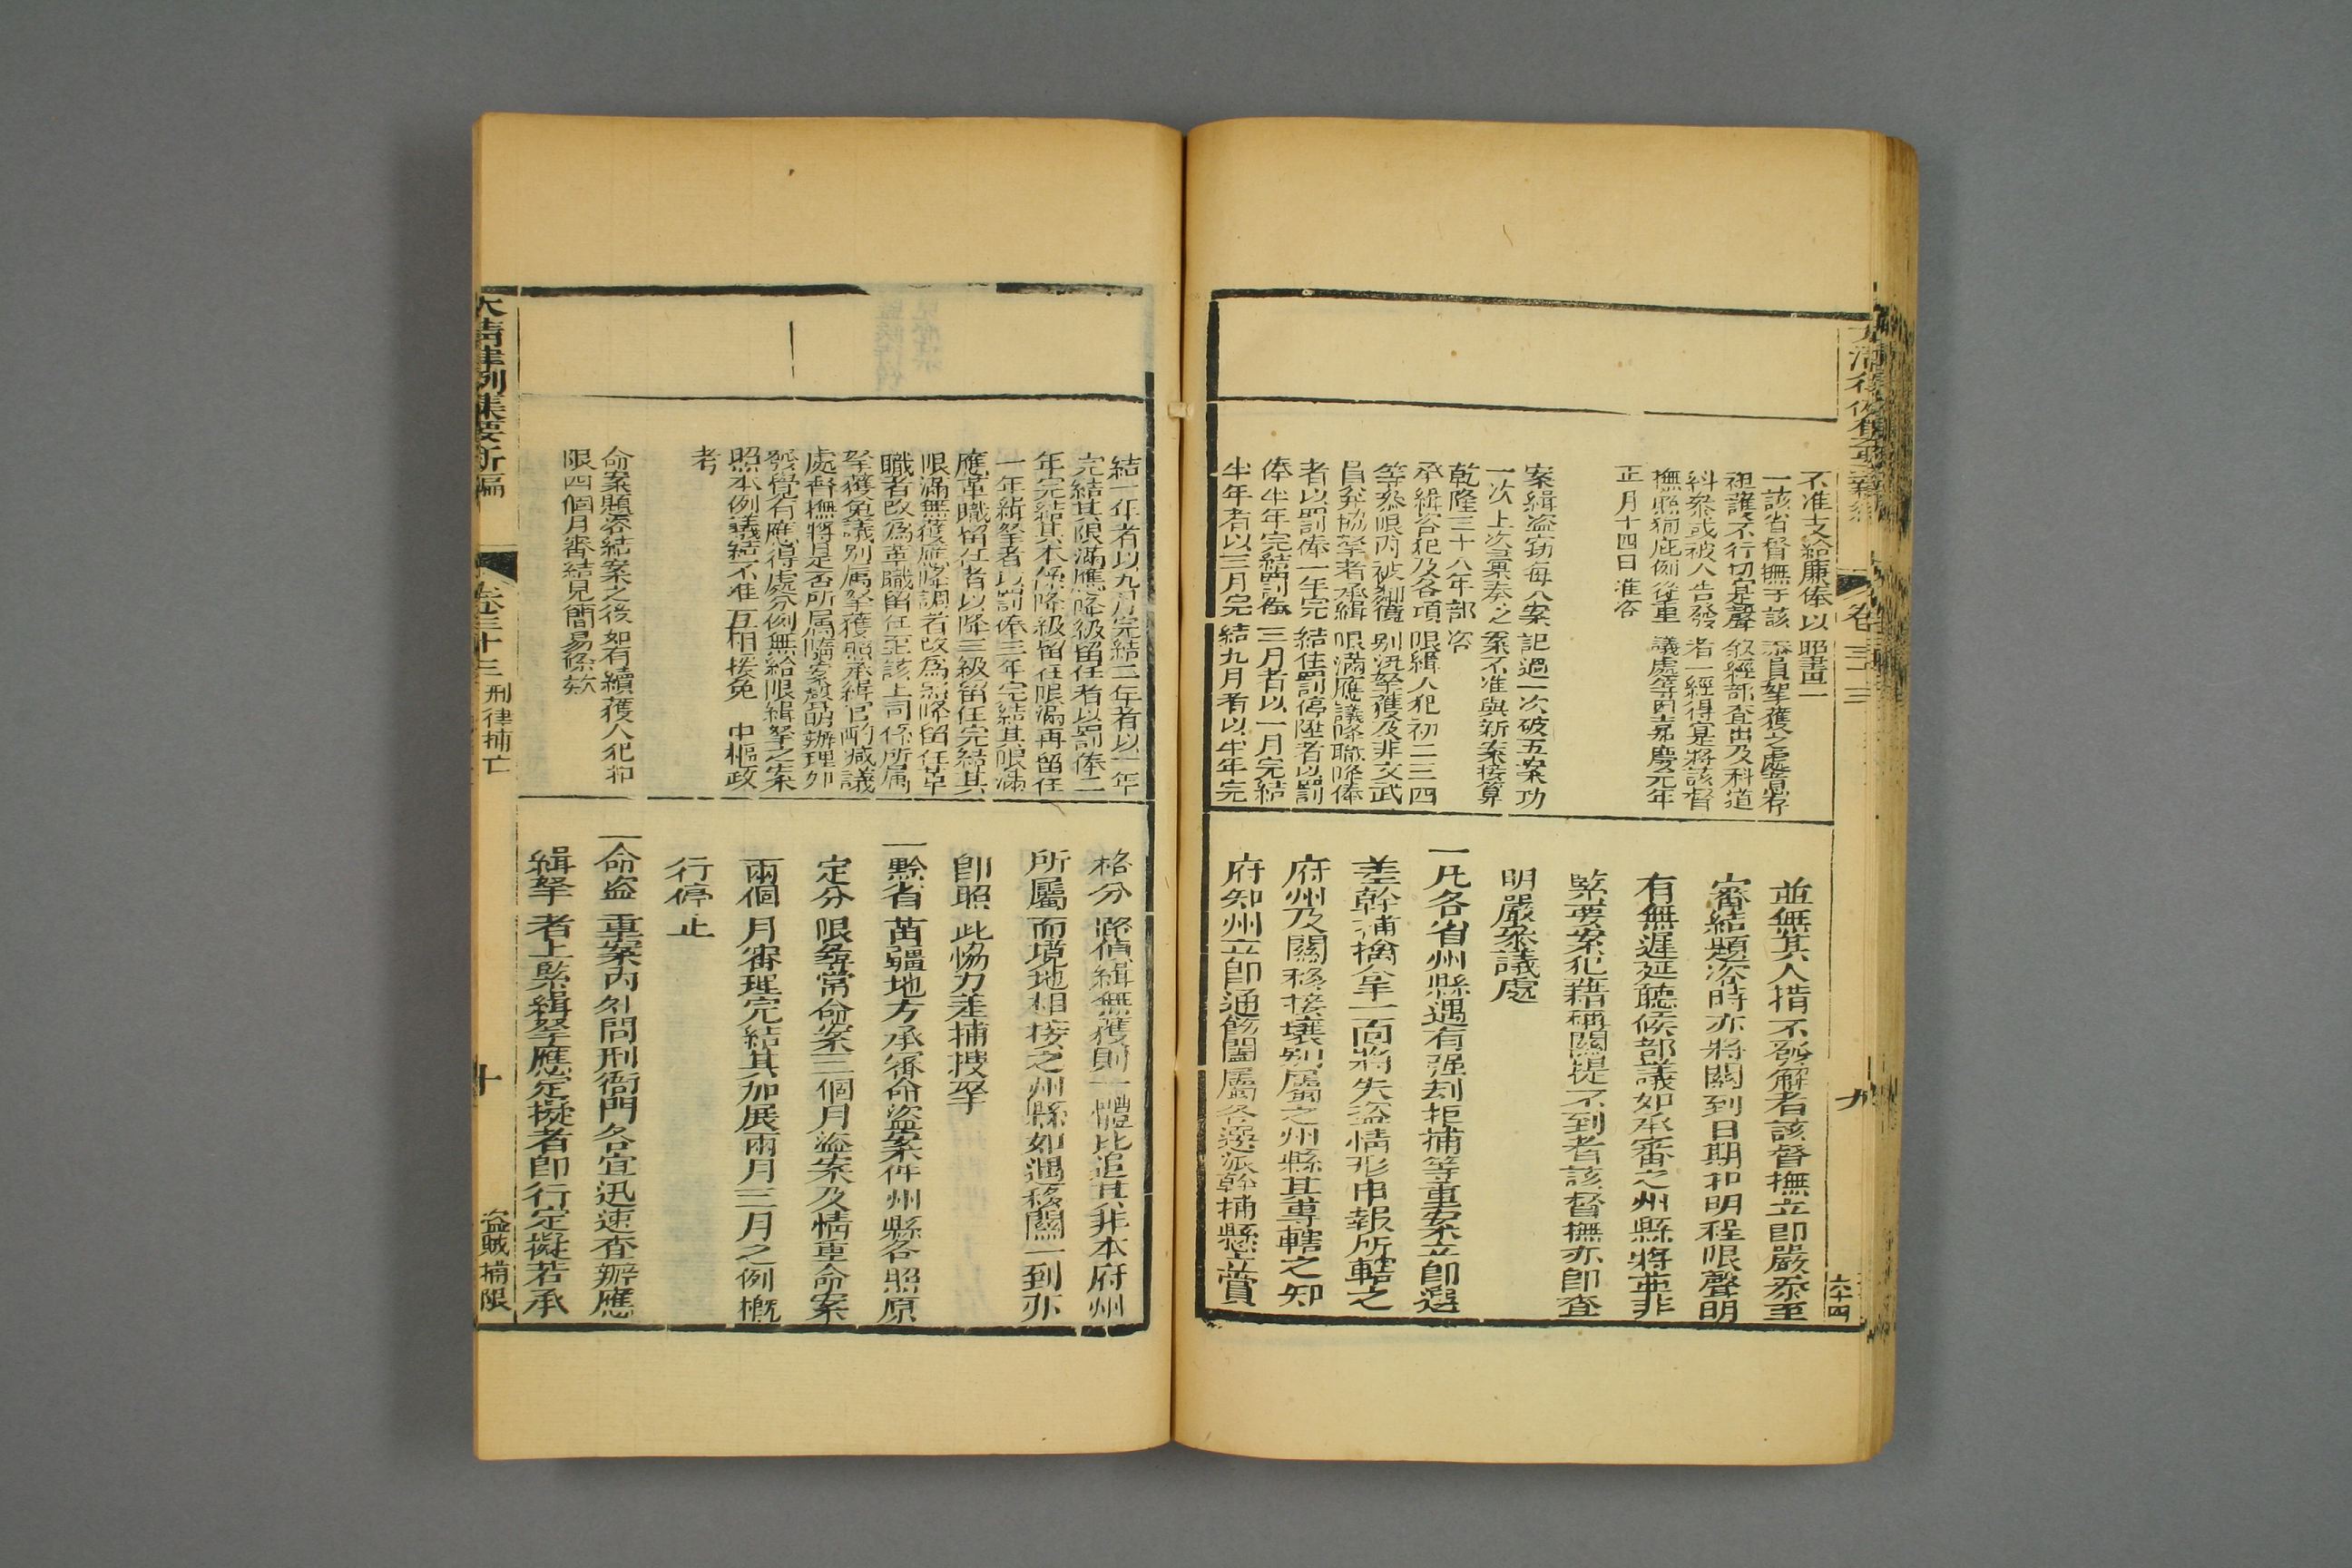 卷三十三
九
六十四
不准支給廉俸以昭畫一
一該省督撫于該添員拏獲之處意存
袒護不行切寔聲敘經部查出及科道
科叅或被人告發者一經得寔將該督
撫照狥庇例從重議處等因嘉慶元年
正月十四日准咨
案緝盜窃每八案記過一次破五案功
一次上次彙奏之案不准與新案接算
乾隆三十八年部咨
承緝咨犯及各項限緝人犯初二三四
等叅限内被鄰境别汛拏獲及非文武
員弁協拏者承緝限滿應議降職降俸
者以罰俸一年完結住罰停陞者以罰
俸半年完結罰俸三月者以一月完結
半年者以三月完結九月者以半年完
並無其人措不發解者該督撫立即嚴叅至
審結題咨時亦將關到日期扣明程限聲明
有無遲延聽候部議如承審之州縣將並非
緊要案犯藉稱關提不到者該督撫亦即查
明嚴叅議處
一凡各省州縣遇有强刦拒捕等重案立即選
差幹捕擒拿一面將失盜情形申報所轄之
府州及關移接壤别屬之州縣其專轄之知
府知州立即通飭闔屬各選派幹捕懸立賞
結一年者以九月完結二年者以一年
完結其限滿應降級留任者以罰俸二
年完結其本係降級留任限滿再留任
一年緝拏者以罰俸三年完結其限滿
應革職留任者以降三級留任完結其
限滿無獲應降調者改為照降留任革
職者改為革職留任至該上司係所属
拏獲免議别属拏獲照承緝官酌减議
處督撫將是否所属隨案聲明辦理如
發覺有應得處分例無給限緝拏之案
照本例議結不准互相接免　中樞政
考
命案題咨結案之後如有續獲人犯扣
限四個月審結見簡易條欵
格分滌偵緝無獲則一體比追其非本府州
所屬而境地相接之州縣如遇移關一到亦
即照此恊力差捕搜拏
一黔省苗疆地方承審命盜案件州縣各照原
定分限尋常命案三個月盜案及情重命案
兩個月審理完結其加展兩月三月之例概
行停止
一命盜重案内外問刑衙門各宜迅速查辦應
緝拏者上緊緝拏應定擬者即行定擬若承
大清律例集要新編
卷三十三
刑律捕亡
十
盜賊捕限